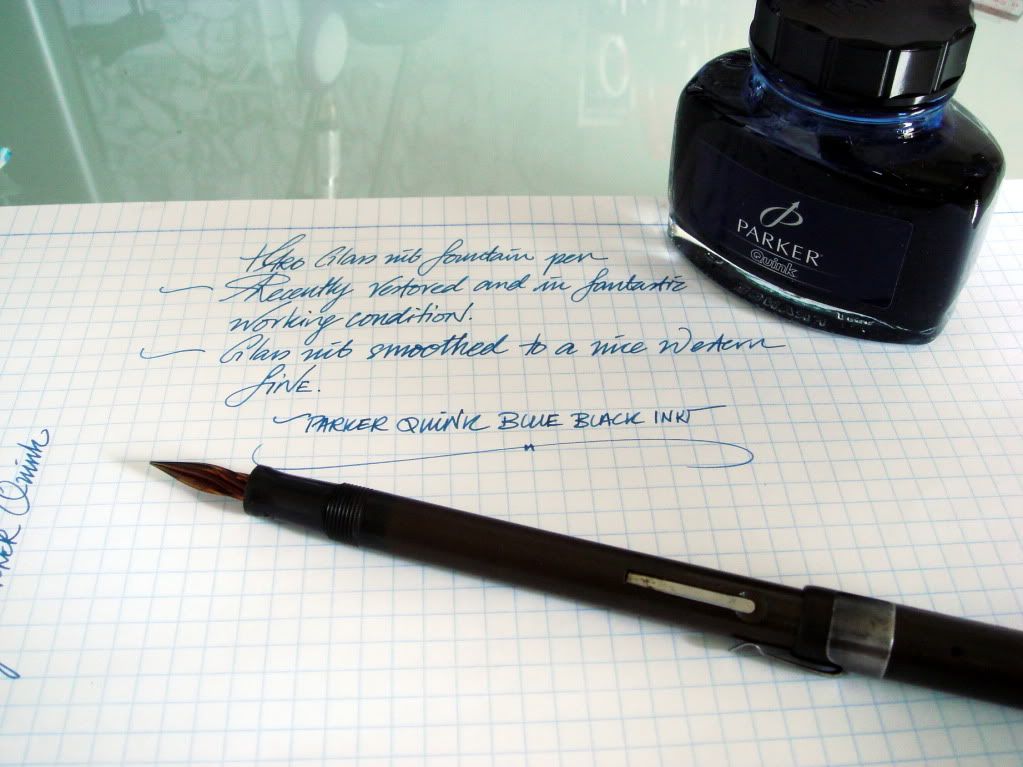 Glass nib fountain pen
Recently restored and in fantastic
working condition.
Glass nib smoothed to a nice Western
fine.
PARKER QUINK BLUE BLACK INK
Quink
PARKER
Quink